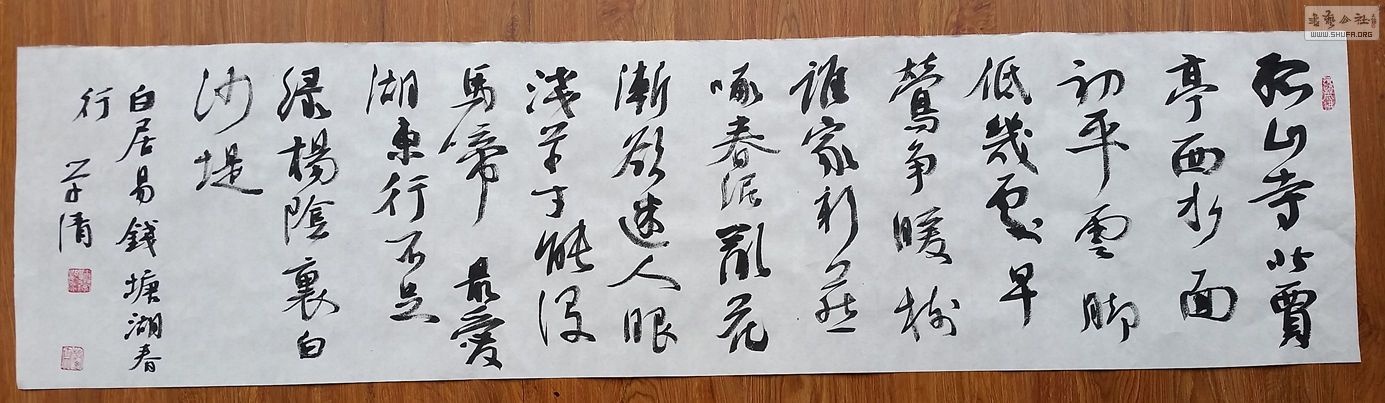 孤山寺北賈
亭西水面
初平雲脚
低幾處早
鶯爭暖樹
誰家新燕
啄春泥亂花
漸欲迷人眼
淺草才能没
馬蹄最愛
湖東行不足
綠楊陰裏白
沙堤
白居易錢塘湖春
行
清
書藝公社
WWW.SHUFA.ORG